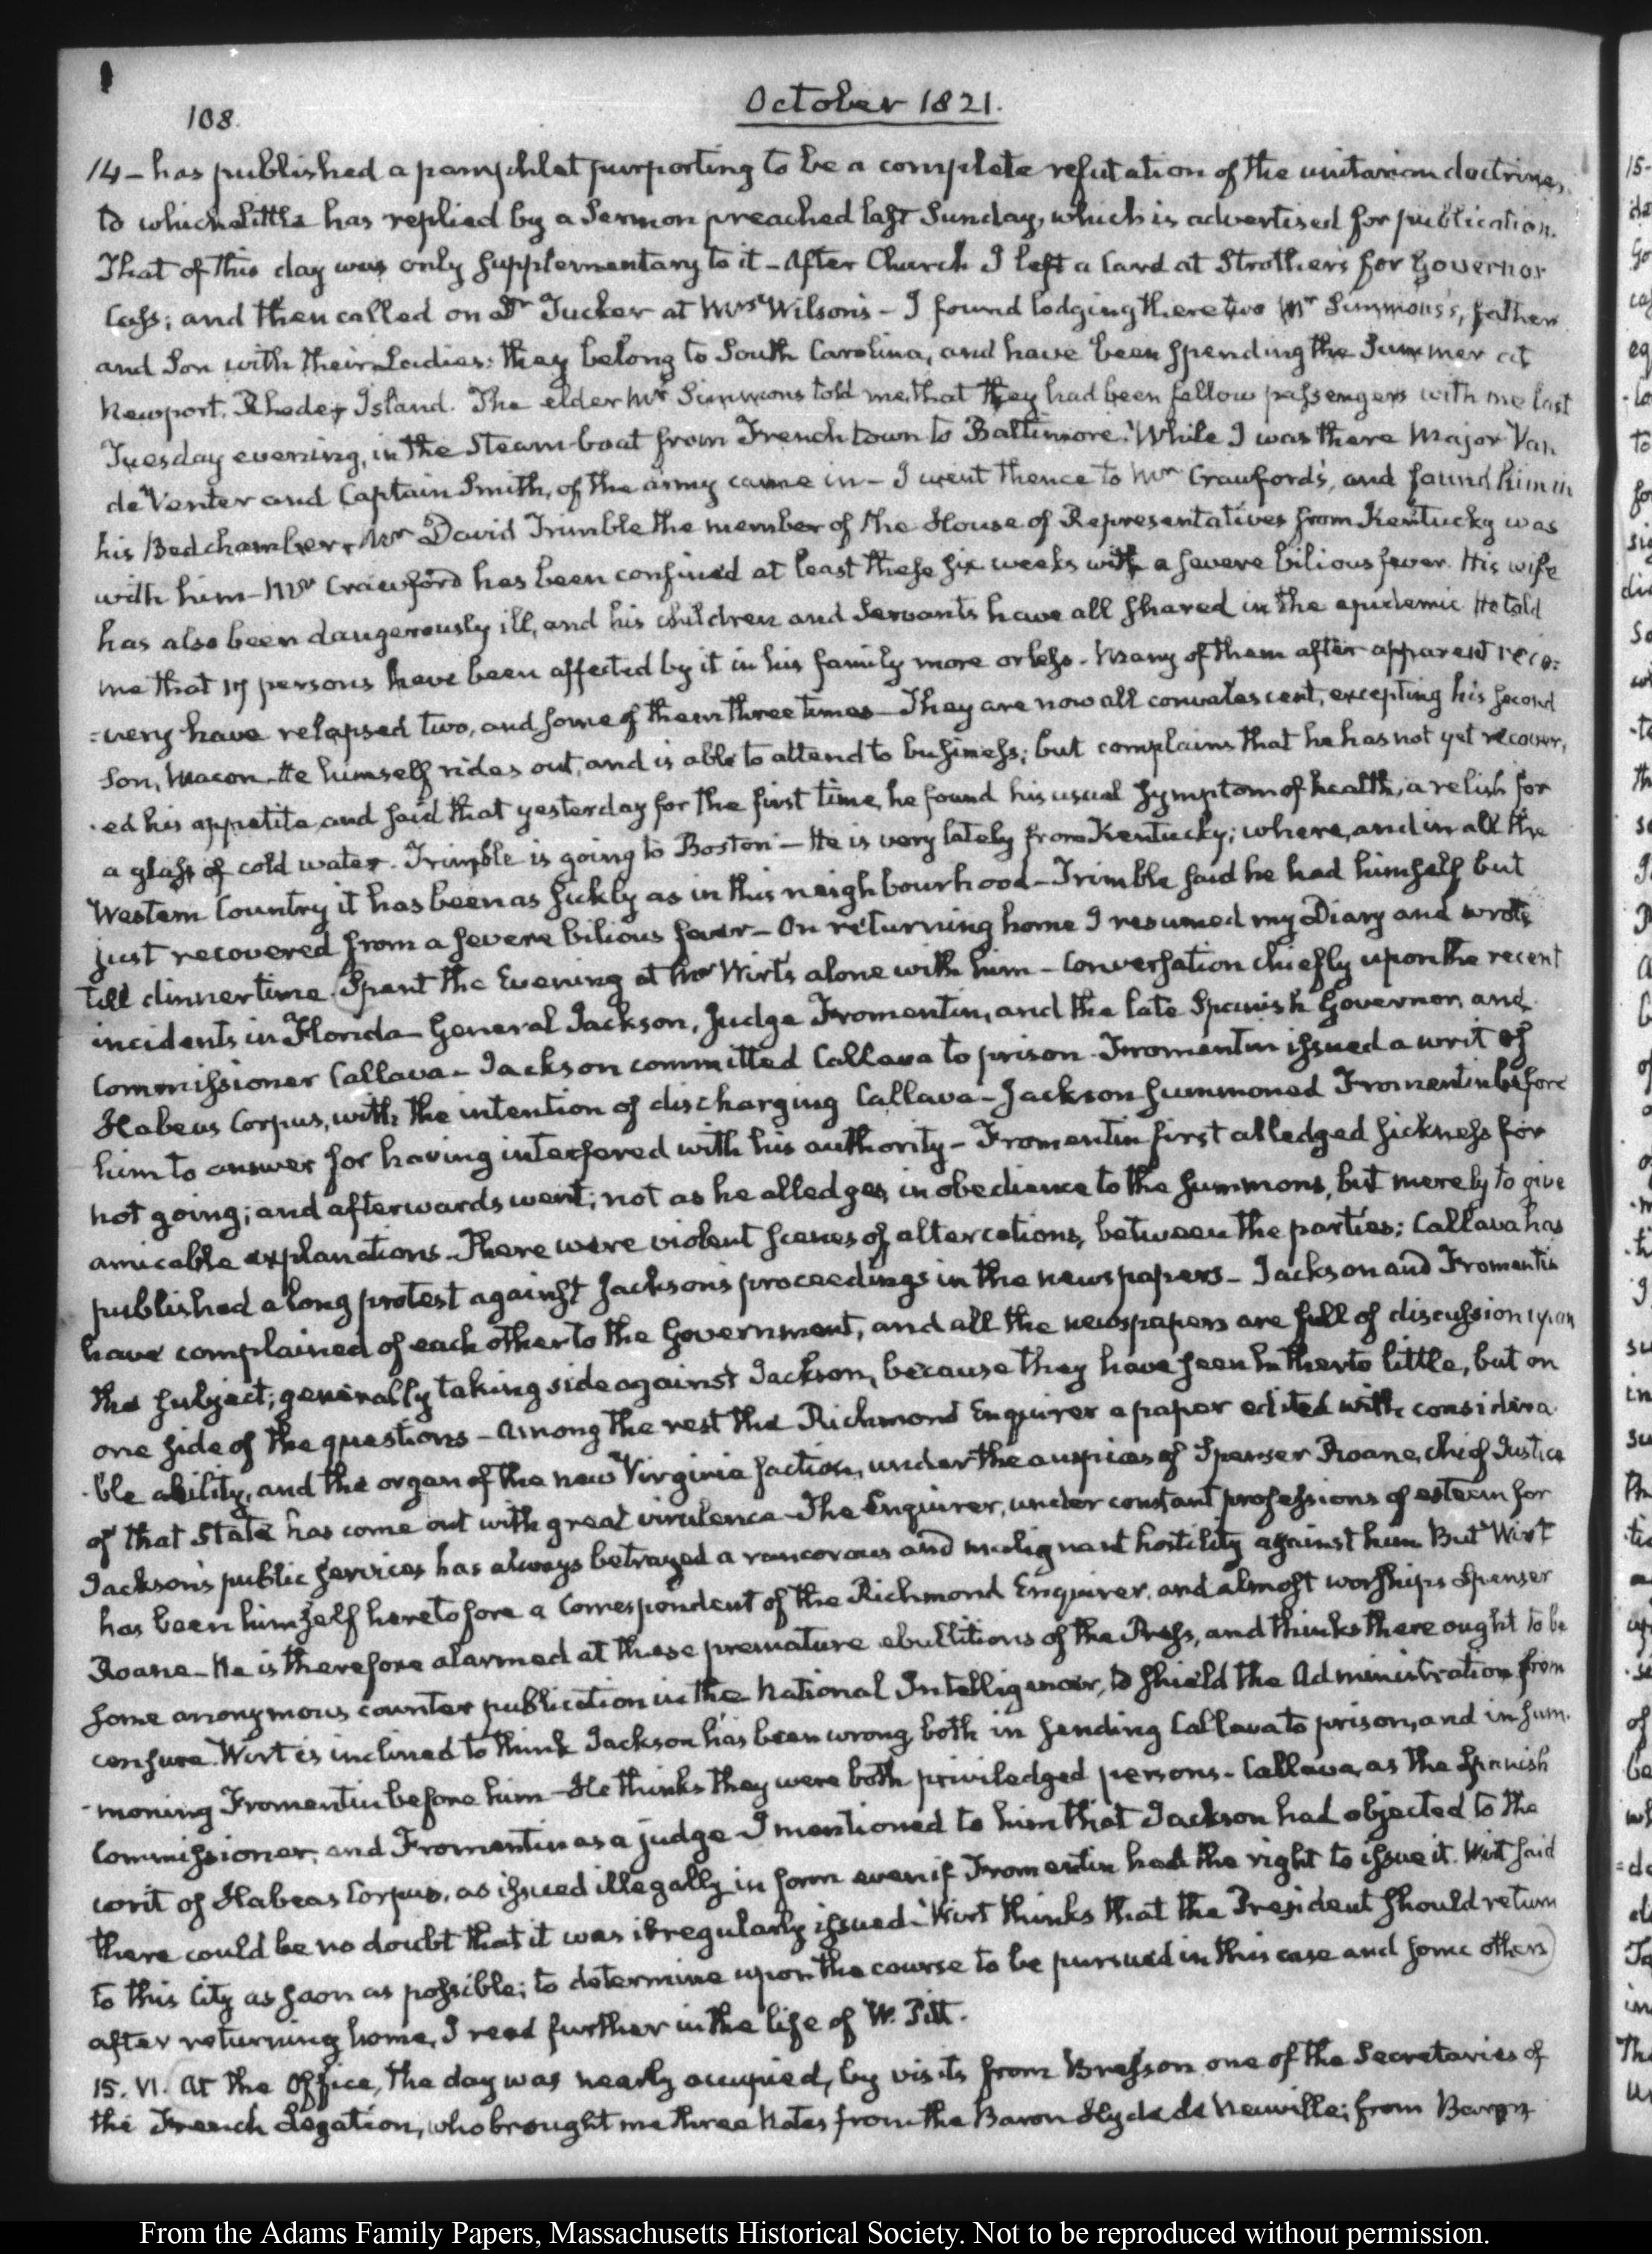 108.
October 1821.
14 - has published a pamphlet purporting to be a complete refutation of the unitarian doctrines,
to which Little has replied by a Sermon preached last Sunday, which is advertised for publication.
That of this day was only supplementary to it - After Church I left a Card at Strother's for Governor
Cass; and then called on Dr Tucker at Mrs Wilson's - I found lodging there two Mr Simmons's, father
and Son with their Ladies: they belong to South Carolina, and have been spending the Summer at
Newport, Rhode Island. The elder Mr Simmons told me that they had been fellow passengers with me last
Tuesday evening, in the Steam-boat from French town to Baltimore. While I was there Major Van
de Venter and Captain Smith, of the army came in - I went thence to Mr Crawford's, and found him in
his Bed chamber. Mr David Trimble the member of the House of Representatives from Kentucky was
with him - Mr Crawford has been confined at least these six weeks with a severe bilious fever. His wife
has also been dangerously ill, and his children and Servants have all shared in the epidemic. He told
me that 17 persons have been affected by it in his family more or less. Many of them after apparent reco:
:very have relapsed two, and some of them three times - They are now all convalescent, excepting his second
Son, Macon. He himself rides out, and is able to attend to business; but complains that he has not yet recover,
-ed his appetite, and said that yesterday for the first time, he found his usual symptom of health, a relish for
a glass of cold water. Trimble is going to Boston - He is very lately from Kentucky; where, and in all the
Western Country it has been as sickly as in this neighbourhood - Trimble said he had himself but
just recovered from a severe bilious fever - On returning home I resumed my Diary and wrote
till dinner time. Spent the Evening at Mr Wirt's alone with him - Conversation chiefly upon the recent
incidents in Florida - General Jackson, Judge Fromentin, and the late Spanish Governor, and
Commissioner Callava - Jackson committed Callava to prison. Fromentin issued a writ of
Habeas Corpus, with the intention of discharging Callava - Jackson summoned Fromentin before
him to answer for having interfered with his authority - Fromentin first alledged sickness for
not going; and afterwards went; not as he alledges, in obedience to the summons, but merely to give
amicable explanations. There were violent scenes of altercations, between the parties; Callava has
published a long protest against Jackson's proceedings in the newspapers - Jackson and Fromentin
have complained of each other to the Government, and all the newspapers are full of discussion upon
the subject; generally taking side against Jackson, because they have seen hitherto little, but on
one side of the questions - Among the rest the Richmond Enquirer a paper edited with considera
-ble ability, and the organ of the new Virginia faction, under the auspices of Spenser Roane, chief Justice
of that State has come out with great virulence - The Enquirer, under constant professions of esteem for
Jackson's public services has always betrayed a rancorous and malignant hostility against him. But Wirt
has been himself heretofore a Correspondent of the Richmond Enquirer, and almost worships Spenser
Roane - He is therefore alarmed at these premature ebullitions of the Press, and thinks there ought to be
some anonymous counter publication in the National Intelligencer, to shield the Administration from
censure. Wirt is inclined to think Jackson has been wrong, both in sending Callava to prison, and in sum.
-moning Fromentin before him - He thinks they were both priviledged persons - Callava, as the Spanish
Commissioner, and Fromentin as a judge - I mentioned to him that Jackson had objected to the
writ of Habeas Corpus, as issued illegally in form even if Fromentin had the right to issue it. Wirt said
there could be no doubt that it was irregularly issued - Wirt thinks that the President should return
to this City as soon as possible; to determine upon the course to be pursued in this case and some others
after returning home, I read further in the life of W. Pitt.
15. VI. At the Office, the day was nearly occupied, by visits from Bresson one of the Secretaries of
the French Legation, who brought me three Notes from the Baron Hyde de Neuville; from Baron
From the Adams Family Papers, Massachusetts Historical Society. Not to be reproduced without permission.